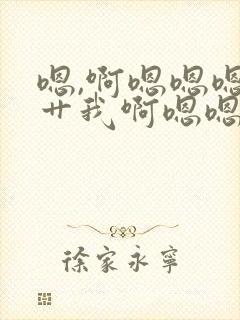 嗯,啊嗯嗯嗯
艹我啊嗯嗯
徐家永寧